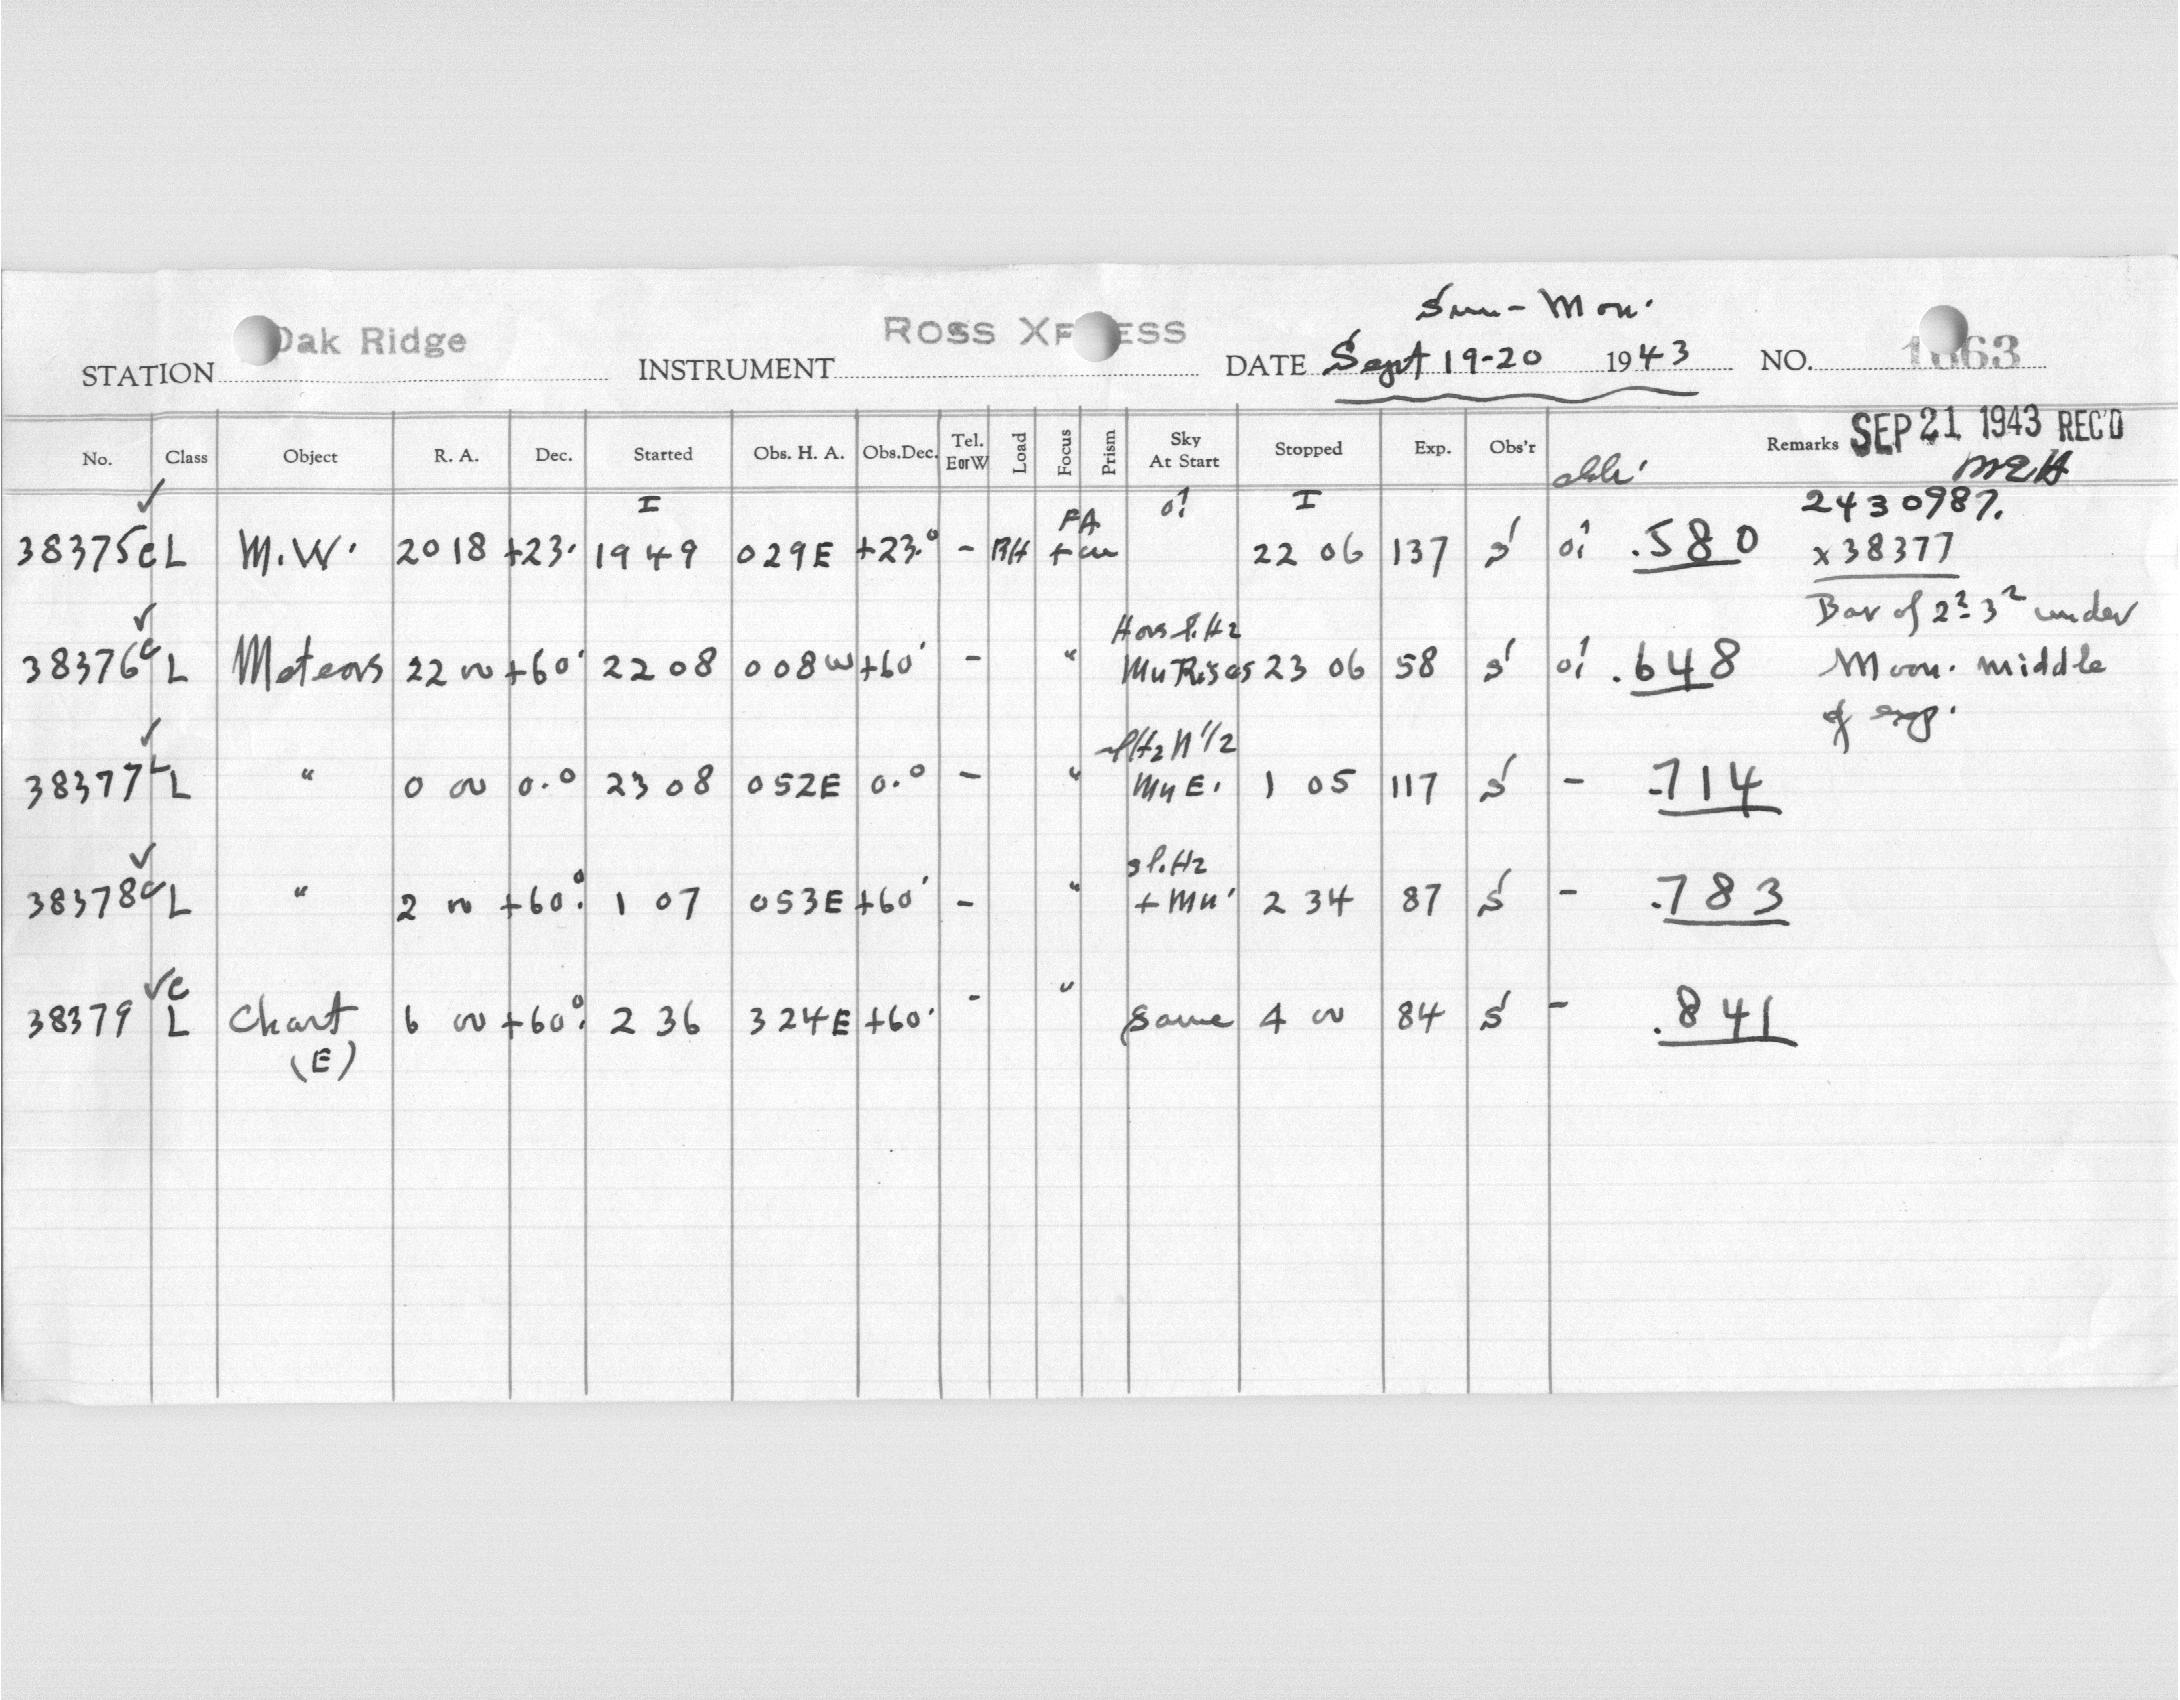 Sun - Mon.
STATION Oak Ridge INSTRUMENT ROSS XPRESS DATE Sept 19-20 1943 NO. 1063
No. Class Object R. A. Dec. Started Obs. H. A. Obs. Dec. Tel. E or W Load Focus Prism Sky At Start Stopped Exp. Obs'r Remarks SEP 21 1943 REC'D
MEH
I I 2430987.
38375 c L M.W. 20 18 +23. 19 49 0 29 E +23.° - RH FA + 22 06 137 S .580 x 38377
Bar of 2² - 3² under
38376 c L Meteors 22 00 +60. 22 08 0 08 W +60 - " Mn Rises 23 06 58 S .648 Moon. middle
of exp.
38377 L L " 0 00 0.° 23 08 0 52 E 0.° - " Hz N 1/2 Mn E. 1 05 117 S - .714
38378 c L " 2 00 +60.° 1 07 0 53 E +60 - " sl. Hz + Mn 2 34 87 S - .783
38379 c L Chart 6 00 +60.° 2 36 3 24 E +60. - " Same 4 00 84 S - .841
(E)